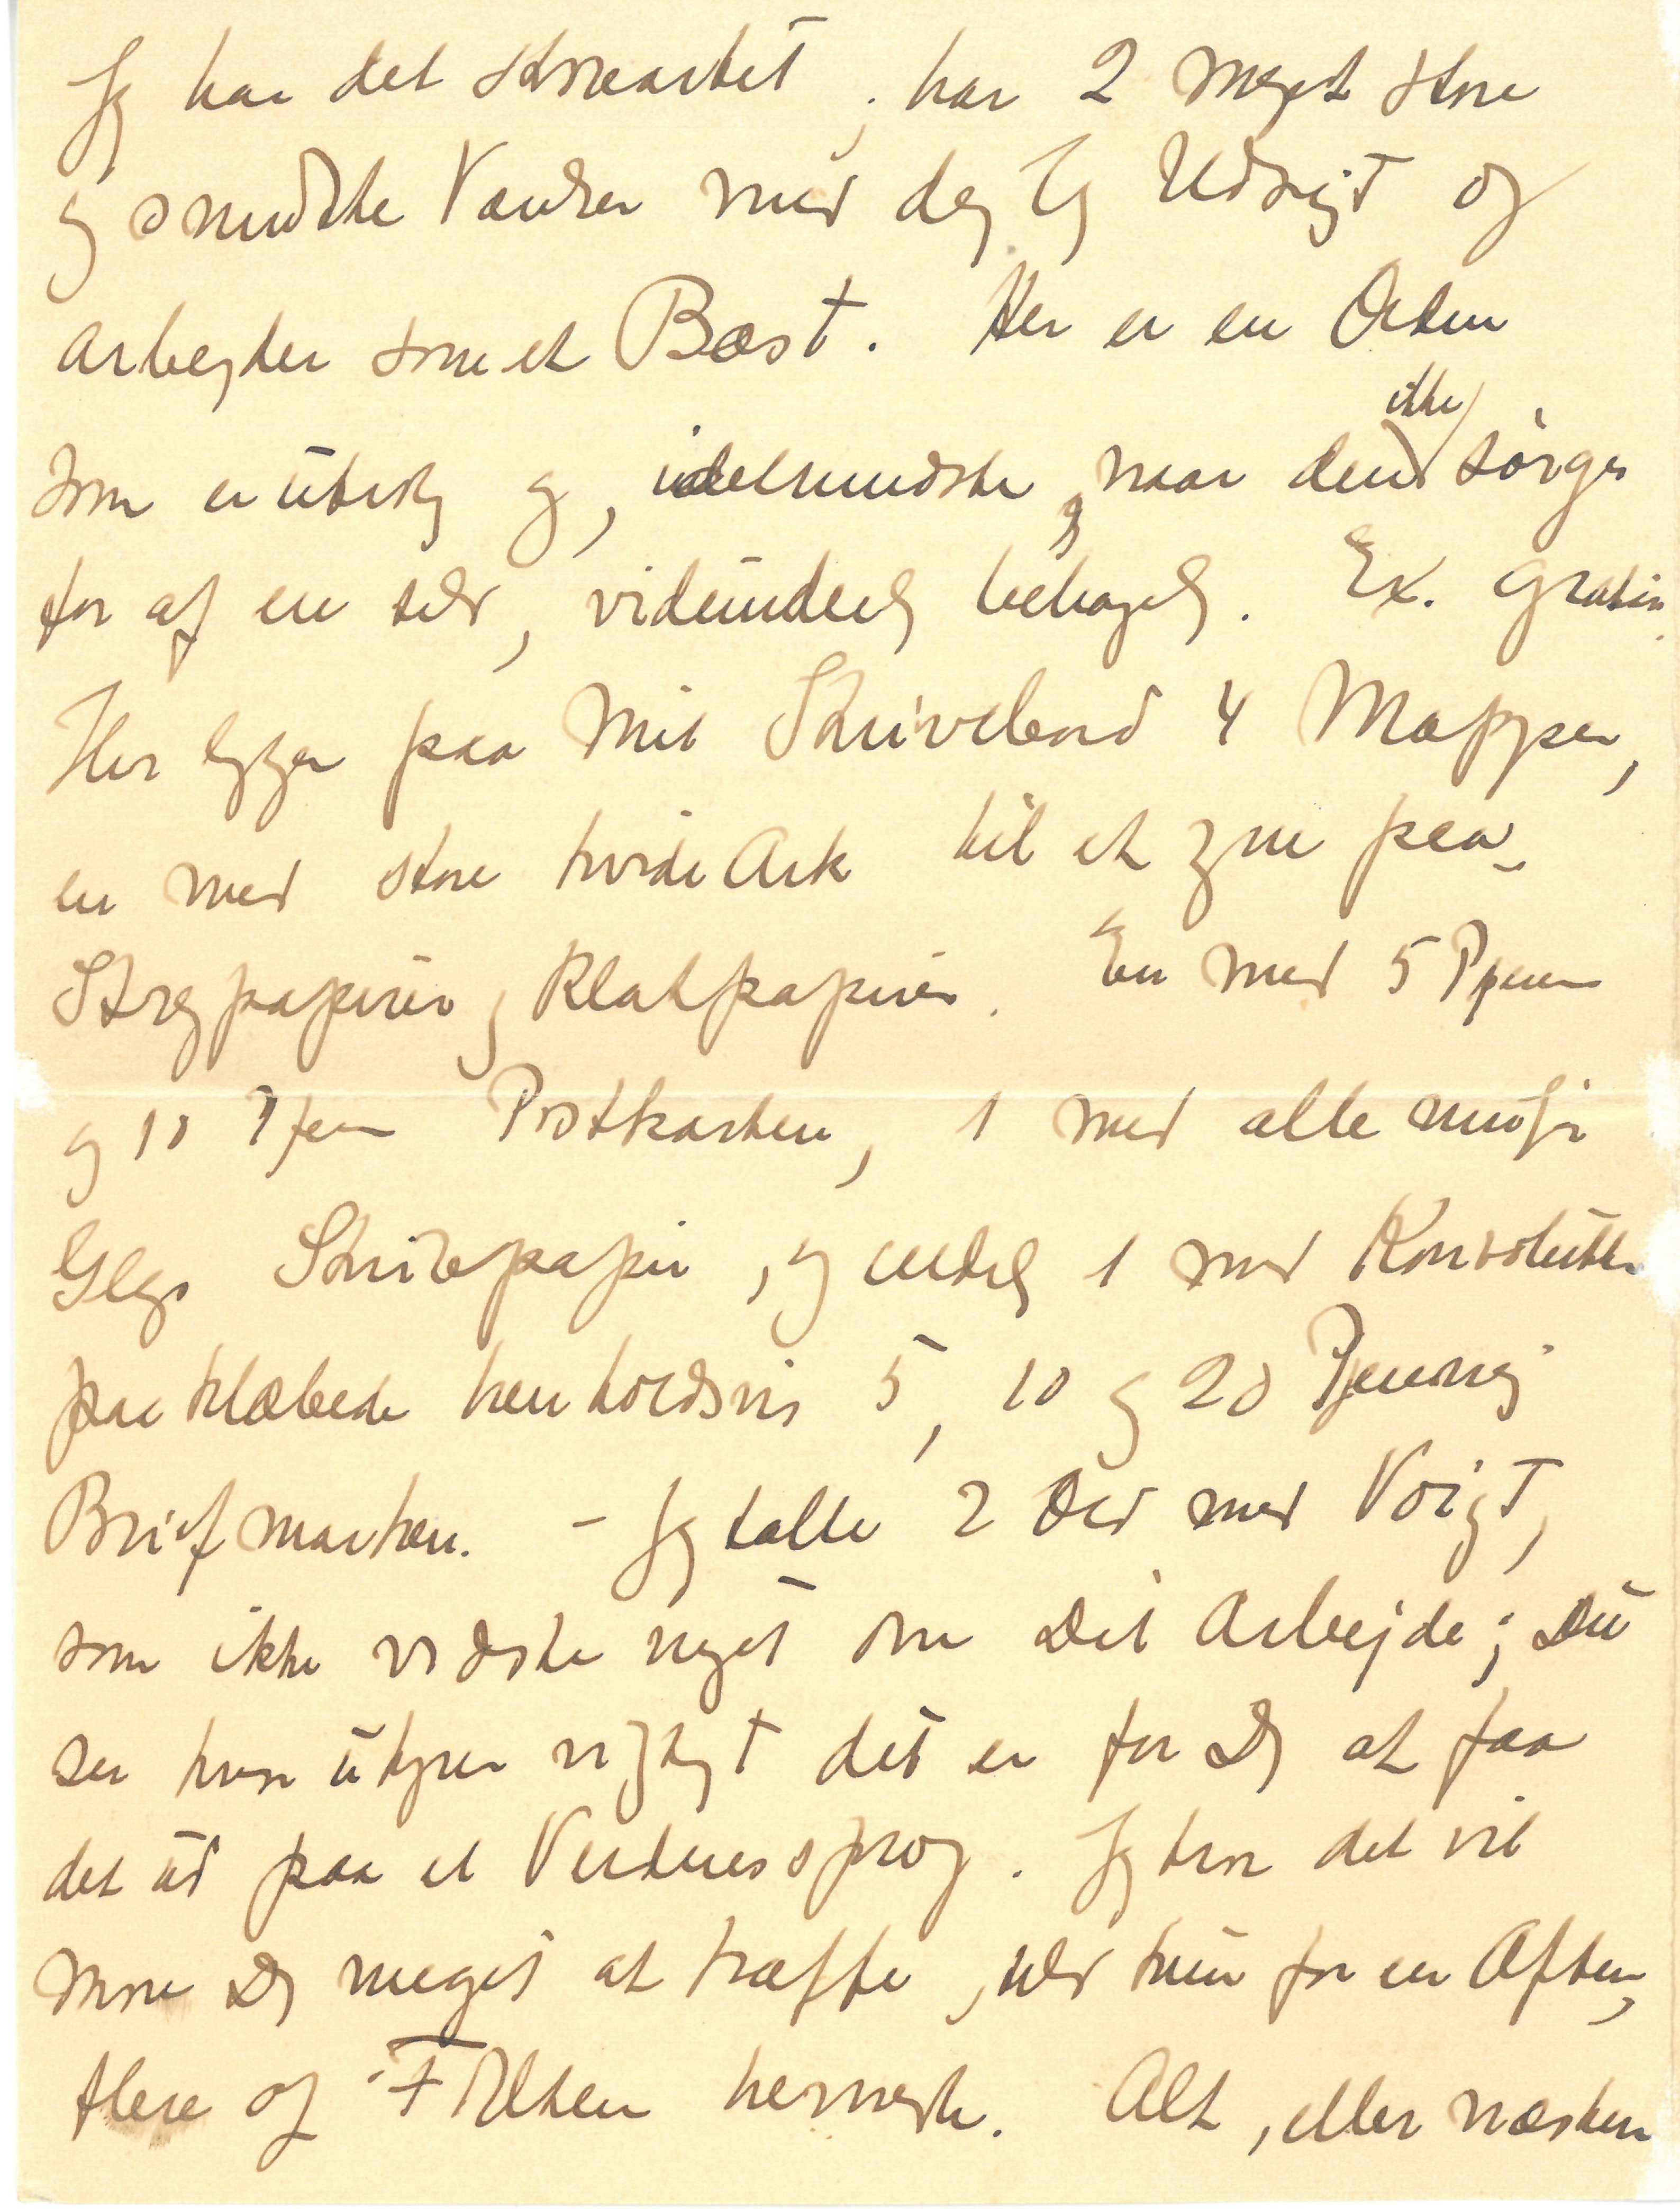 Jeg har det storartet, har 2 meget store
og smukke Værelser med dejlig Udsigt og
arbejder som et Bæst. Her er en Orden
som er utrolig og, idetmindste, naar den ikke sørges
for af en selv, vidunderlig behagelig. Ex. gratia.
Her ligger paa mit Skrivebord 4 Mapper,
en med store hvide Ark til at paa
Stregpapir og Klatpapir. En med 5 Pfen
og 10 Pfen Postkarten, 1 med alle mulige
Slags Skrivepapir, og endelig 1 med Konvolutter
paaklæbede henholdsvis 5, 10 og 20 Pfennig
Briefmarken. – Jeg talte 2 Ord med Voigt,
som ikke vidste noget om Dit Arbejde; Du
ser hvor uhyre vigtigt det er for Dig at faa
det ud paa et Verdenssprog. Jeg tror det vil
more Dig meget at træffe, selv kun for en Aften,
flere af Folkene hernede. Alt, eller næsten